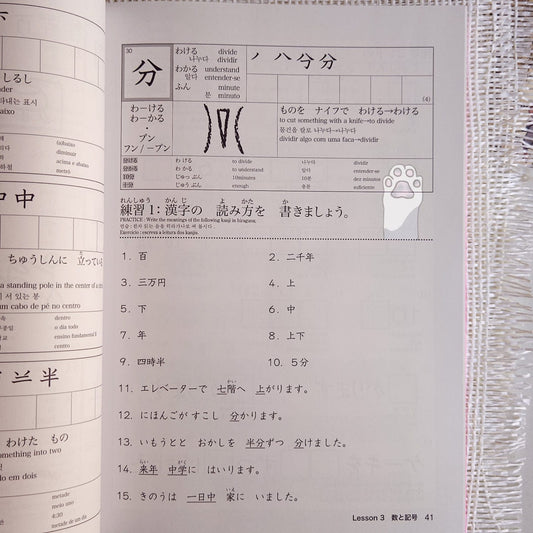 しるし
nder
내는 표시
aixo
(abaixo)
diminuir
acima e abaixo
metade
中中
ちゅうしんに 立っている
a standing pole in the center of a
서 있는 봉
um cabo de pé no centro
dentro
o dia todo
ensino fundamental II
centro
半
わけた もの
omething into two
em dois
metade
meio ano
4:30
metade de um dia
30
分
わける divide
나누다 dividir
わかる understand
알다 entender-se
ふん minute
분 minuto
ノ 八 分 分
(4)
わ－ける
わ－かる
・
ブン
フン／－プン
ものを ナイフで わける→わける
to cut something with a knife→to divide
물건을 칼로 나누다→나누다
dividir algo com uma faca→dividir
分ける わける to divide 나누다 dividir
分かる わかる to understand 알다 entender-se
10分 じゅっぷん 10minutes 10분 dez minutos
十分 じゅうぶん enough 충분 suficiente
れんしゅう かんじ よ かた か
練習1：漢字の 読み方を 書きましょう。
PRACTICE : Write the meanings of the following kanji in hiragana.
연습 : 한자 읽는 음을 히라가나로 써 봅시다.
Exercício : escreva a leitura dos kanjis.
1. 百 2. 二千年
3. 三万円 4. 上
5. 下 6. 中
7. 年 8. 上下
9. 四時半 10. 5分
かい
11. エレベーターで 七階へ 上がります。
12. にほんごが すこし 分かります。
13. いもうとと おかしを 半分ずつ 分けました。
らい がく
14. 来年 中学に はいります。
いえ
15. きのうは 一日中 家に いました。
Lesson 3 数と記号 41